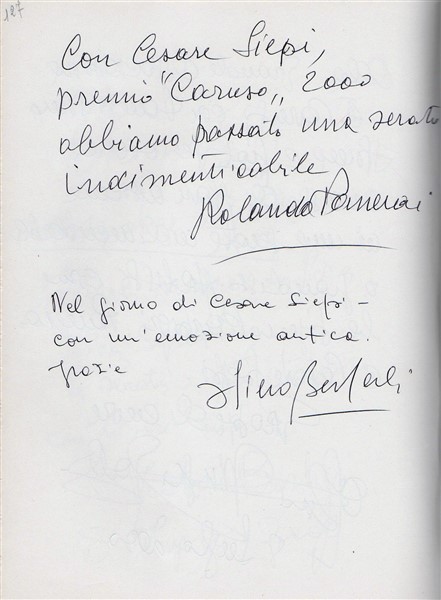 127
Con Cesare Siepi,
premio "Caruso„ 2000
abbiamo passato una serata
indimenticabile
Rolando Panerai
Nel giorno di Cesare Siepi -
con un'emozione antica.
Grazie